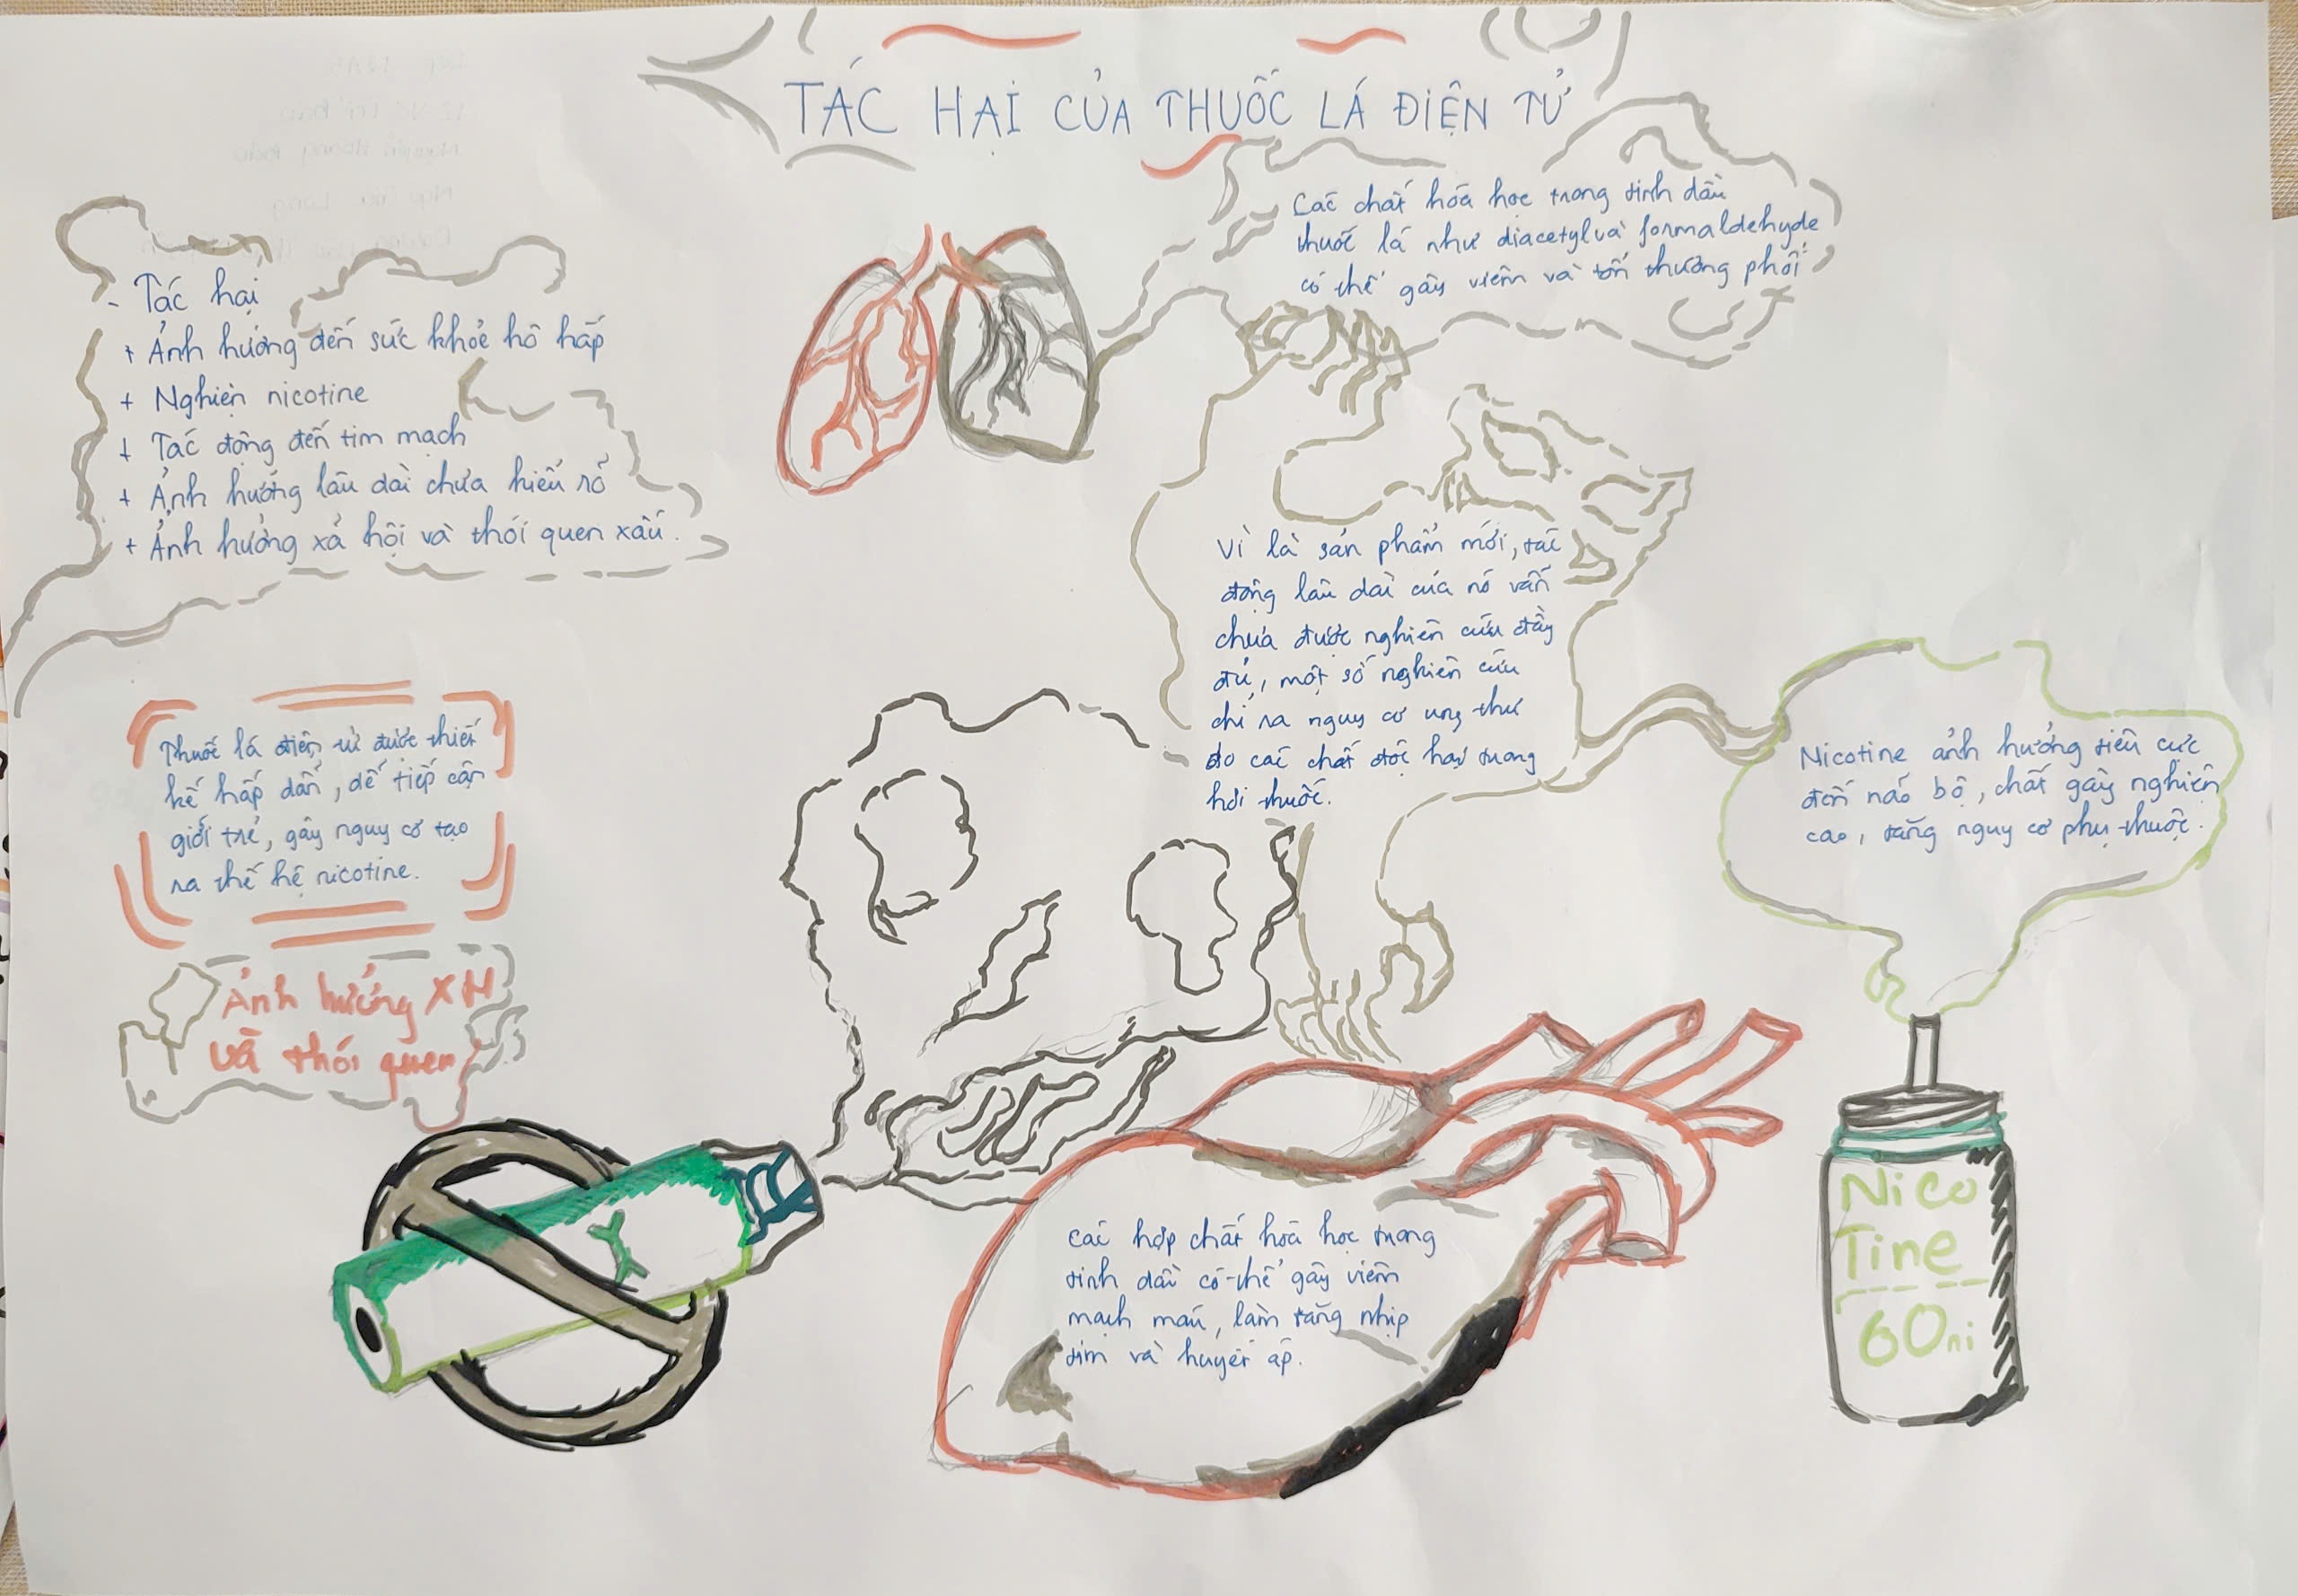 TÁC HẠI CỦA THUỐC LÁ ĐIỆN TỬ
Các chất hóa học trong tinh dầu
thuốc lá như diacetyl và formaldehyde
có thể gây viêm và tổn thương phổi
- Tác hại
+ Ảnh hưởng đến sức khoẻ hô hấp
+ Nghiện nicotine
+ Tác động đến tim mạch
+ Ảnh hưởng lâu dài chưa hiểu rõ
+ Ảnh hưởng xã hội và thói quen xấu.
Vì là sản phẩm mới, tác
động lâu dài của nó vẫn
chưa được nghiên cứu đầy
đủ, một số nghiên cứu
chỉ ra nguy cơ ung thư
do các chất độc hại trong
hơi thuốc.
Thuốc lá điện tử được thiết
kế hấp dẫn, dễ tiếp cận
giới trẻ, gây nguy cơ tạo
ra thế hệ nicotine.
Nicotine ảnh hưởng tiêu cực
đến não bộ, chất gây nghiện
cao, tăng nguy cơ phụ thuộc.
Ảnh hưởng XH
và thói quen
Các hợp chất hóa học trong
tinh dầu có thể gây viêm
mạch máu, làm tăng nhịp
tim và huyết áp.
Nico
Tine
60ni